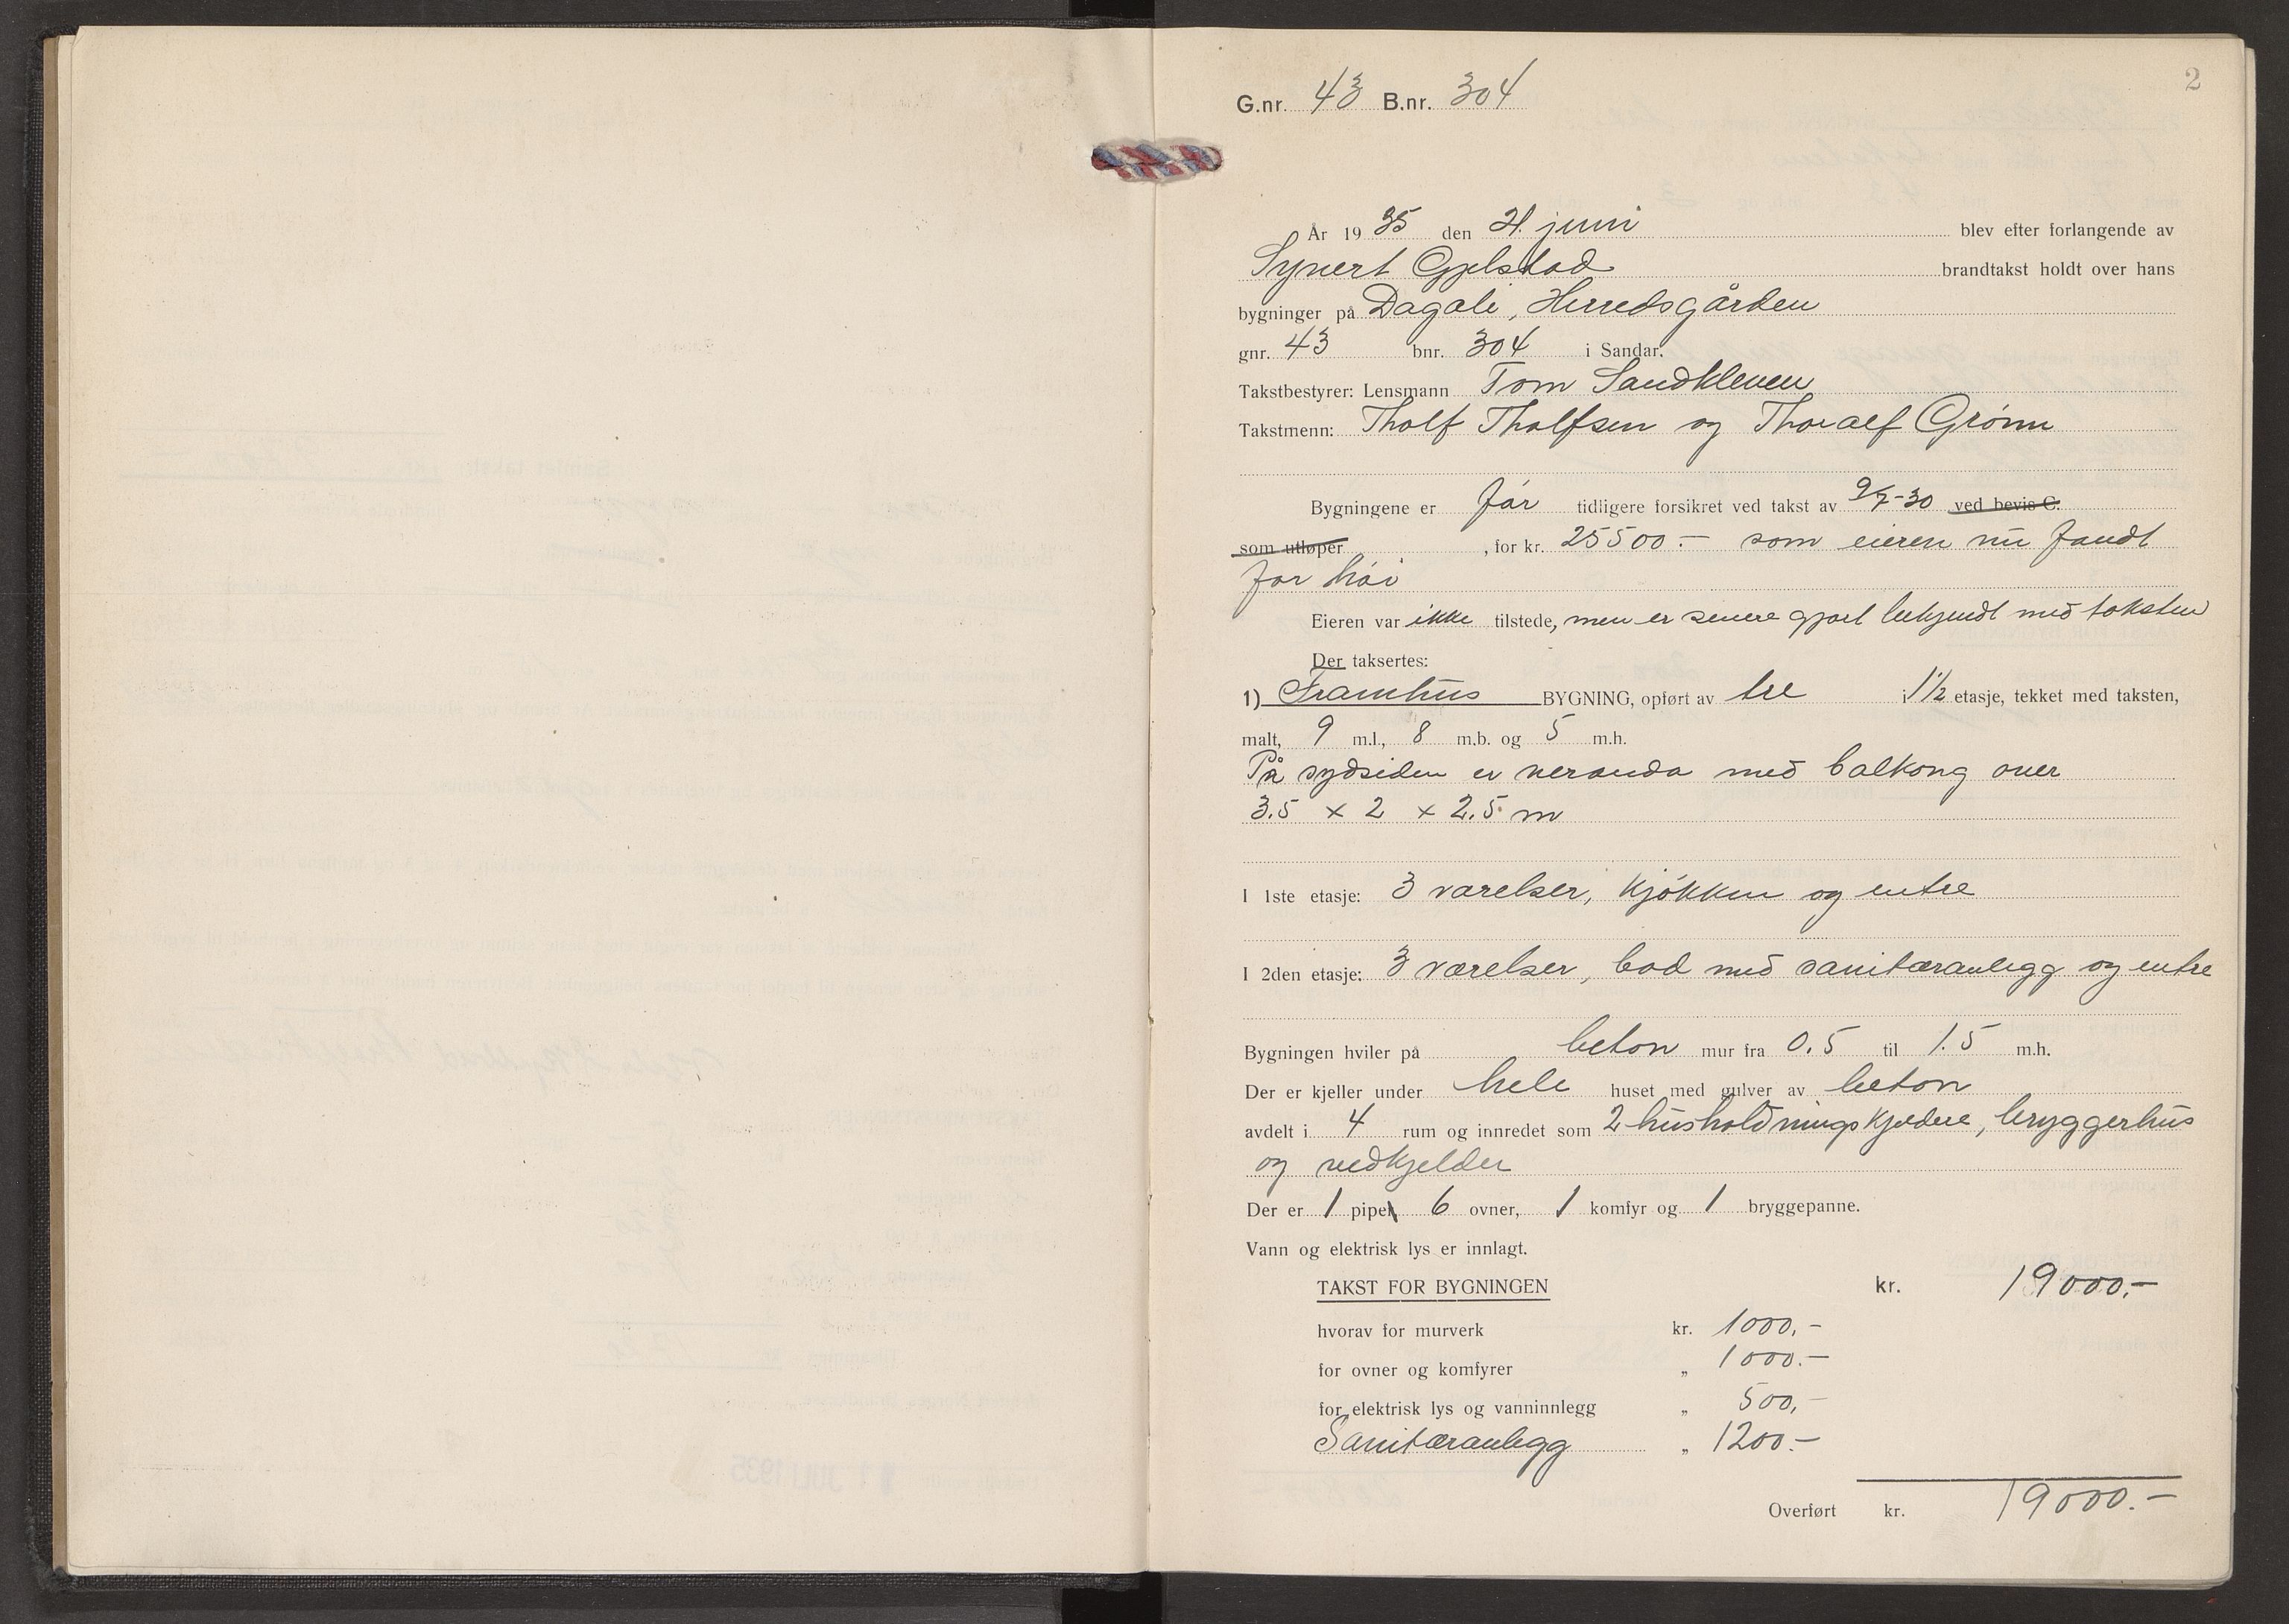 2
G.nr. 43 B.nr. 304
År 19 35 den 21. juni blev efter forlangende av
Synert Gjelstad brandtakst holdt over hans
bygninger på Dagali, Herredsgården
gnr. 43 bnr. 304 i Sandar.
Takstbestyrer: Lensmann Tom Sandkleven
Takstmenn: Tholf Tholfsen og Thoralf Grønn
Bygningene er før tidligere forsikret ved takst av 9/7-30 ved bevis C.
som utløper, for kr. 25500.- som eieren nu fandt
for høi
Eieren var ikke tilstede, men er senere gjort bekjendt med taksten
Der taksertes:
1) Framhus BYGNING, opført av tre i 1 1/2 etasje, tekket med taksten,
malt, 9 m.l., 8 m.b. og 5 m.h.
På sydsiden er veranda med balkong over
3.5 x 2 x 2.5 m
I 1ste etasje: 3 værelser, kjøkken og entre
I 2den etasje: 3 værelser, bad med sanitæranlegg og entre
Bygningen hviler på beton mur fra 0.5 til 1.5 m.h.
Der er kjeller under hele huset med gulver av beton
avdelt i 4 rum og innredet som 2 husholdningskjeldere, bryggerhus
og vedkjelder
Der er 1 pipe 6 ovner, 1 komfyr og 1 bryggepanne.
Vann og elektrisk lys er innlagt.
TAKST FOR BYGNINGEN kr. 19000.-
hvorav for murverk kr. 1000,-
for ovner og komfyrer „ 1000.-
for elektrisk lys og vanninnlegg „ 500,-
Sanitæranlegg „ 1200.-
Overført kr. 19000.-